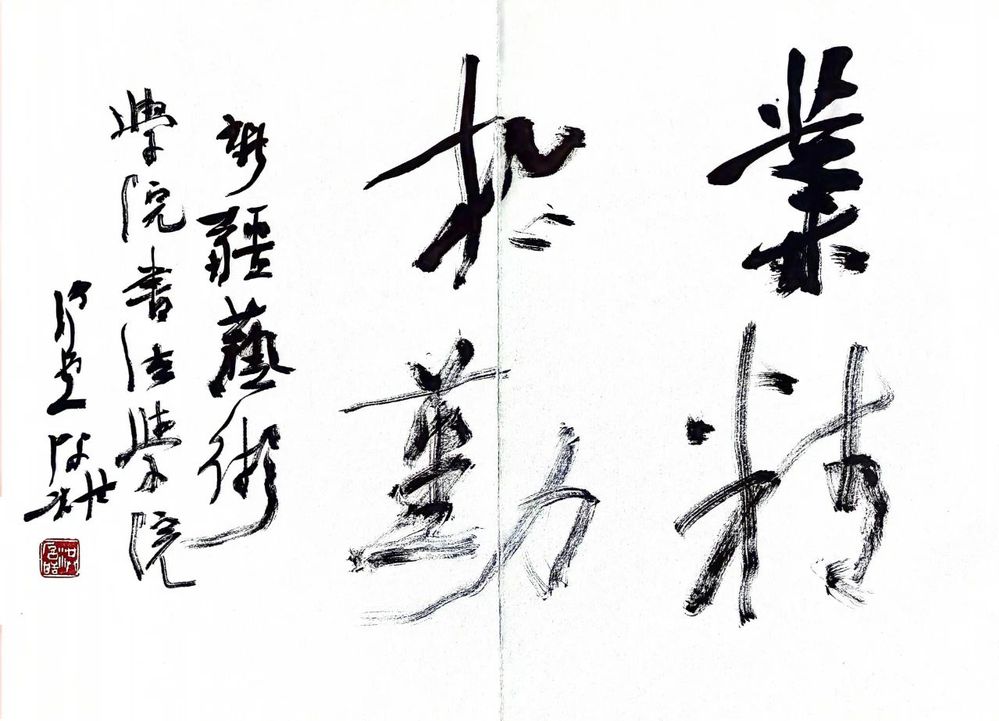 業精
於勤
新疆藝術
學院書法學院